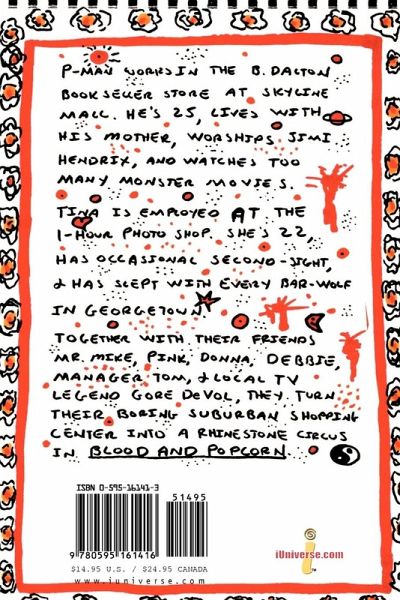 P-MAN WORKS IN THE B. DALTON
BOOKSELLER STORE AT SKYLINE
MALL. HE'S 25, LIVES WITH
HIS MOTHER, WORSHIPS JIMI
HENDRIX, AND WATCHES TOO
MANY MONSTER MOVIES.
TINA IS EMPLOYED AT THE
1-HOUR PHOTO SHOP. SHE'S 22,
HAS OCCASIONAL SECOND-SIGHT,
& HAS SLEPT WITH EVERY BAR-WOLF
IN GEORGETOWN.
TOGETHER WITH THEIR FRIENDS
MR. MIKE, PINK, DONNA, DEBBIE,
MANAGER TOM, & LOCAL TV
LEGEND GORE DEVOL, THEY TURN
THEIR BORING SUBURBAN SHOPPING
CENTER INTO A RHINESTONE CIRCUS
IN BLOOD AND POPCORN.
ISBN 0-595-16141-3
51495
9 780595 161416
$14.95 U.S. / $24.95 CANADA
www.iuniverse.com
iUniverse.com
TM